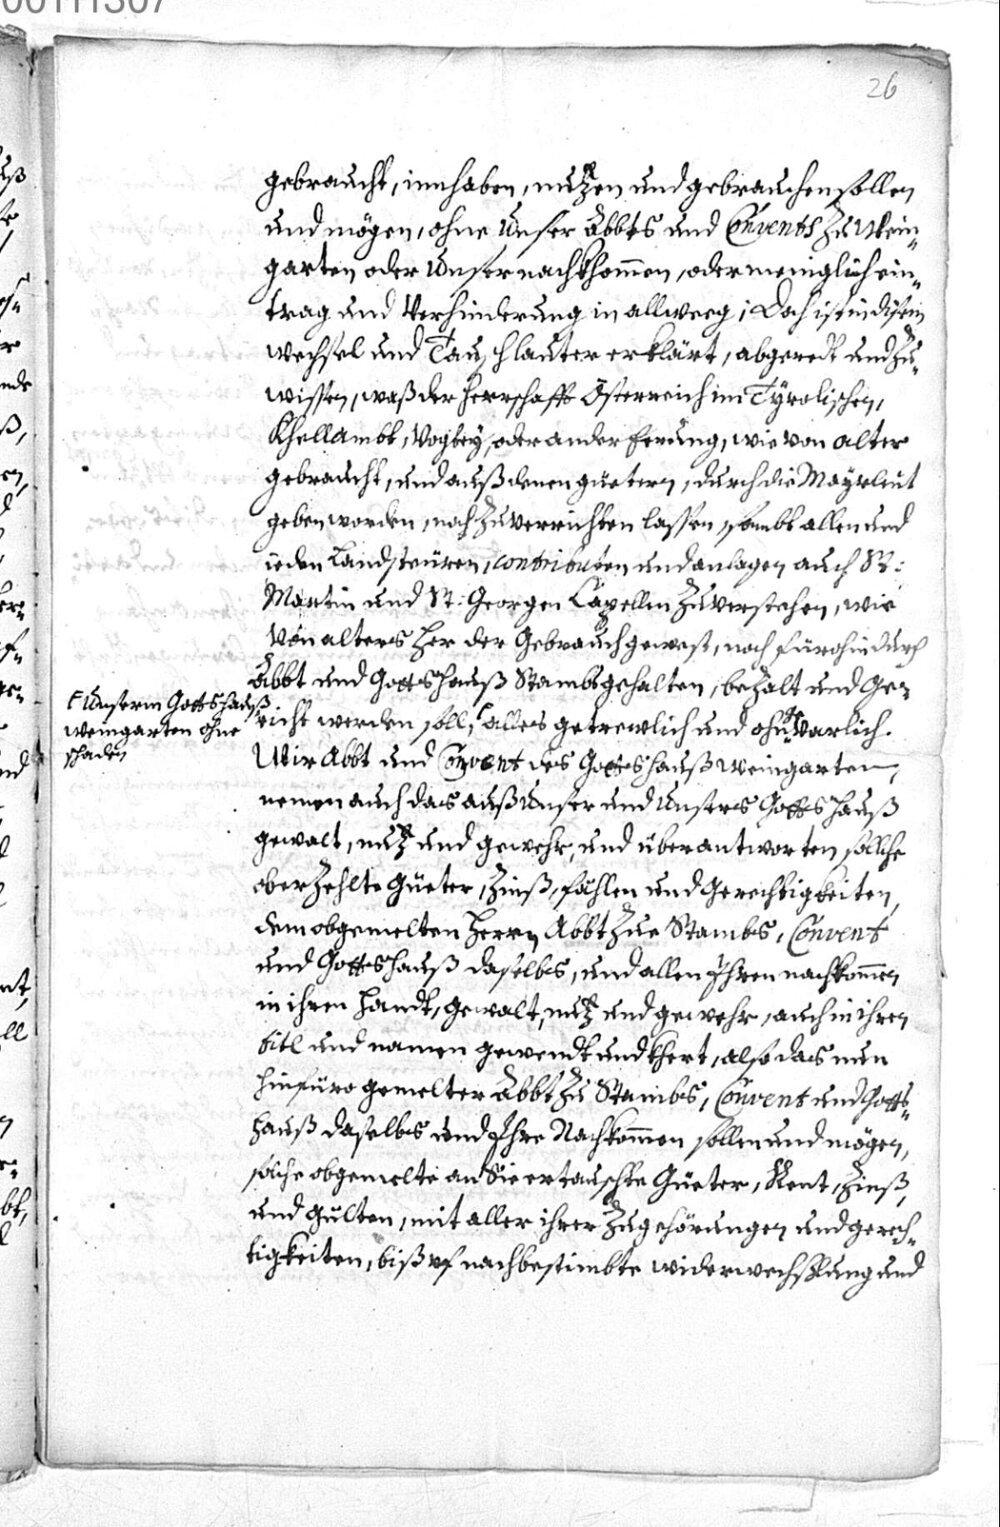 26
gebraucht, innhaben, nutzen und gebrauchen sollen
und mögen, ohne Unser Abbts und Convents zu Wein-
garten oder Unser nachkhom̄en, oder meniglich ein-
trag und Verhinderung in allweeg; Doch ist in disem
wechsel und Tausch lauter erklärt, abgeredt und zu-
wissen, waß der Herrschafft Österreich im Tyrolischen,
Khellambt, Vogtey, oder ander Herung, wie von alter
gebraucht, und auß denen güetern, durch die Mayrleut
geben worden, noch zuverrichten lassen, sambt allen und
ieden Landsteüren, contributen und anlagen auch St:
Martin und St: Georgen Capellen zuverstehen, wie
von alters her der Gebrauch gewest, noch fürohin durch
Abbt und Gottshauß Stambs gehalten, bezalt und ge-
richt werden soll, alles getrewlich und ohngevarlich.
F Unserm Gottshauß
weingarten ohne
schaden
Wir Abbt und Convent des Gottshauß weingarten,
nemen auch das auß Unser und Unsers Gottshauß
gewalt, nutz und gewehr, und überantworten solliche
oberzehlte Güeter, Zinß, fählen und Gerechtigkeiten,
dem obgemelten Herrn Abbt zue Stambs, Convent
und Gottshauß daselbs, und allen Ihren nachkom̄en
in ihren Handt, gewalt, nutz und gewehr, auch in ihren
titl und namen gewendt und khert, also das nun
hinfüro gemelter Abbt zu Stambs, Convent und Gotts-
hauß daselbs und Ihre Nachkom̄en sollen und mögen,
solche obgemelte an Sie ertauschte Güeter, Rent, Zinß,
und gulten, mit aller ihrer Zugehörungen und gerech-
tigkeiten, biß uf nachbestimbte widerwechßlung und